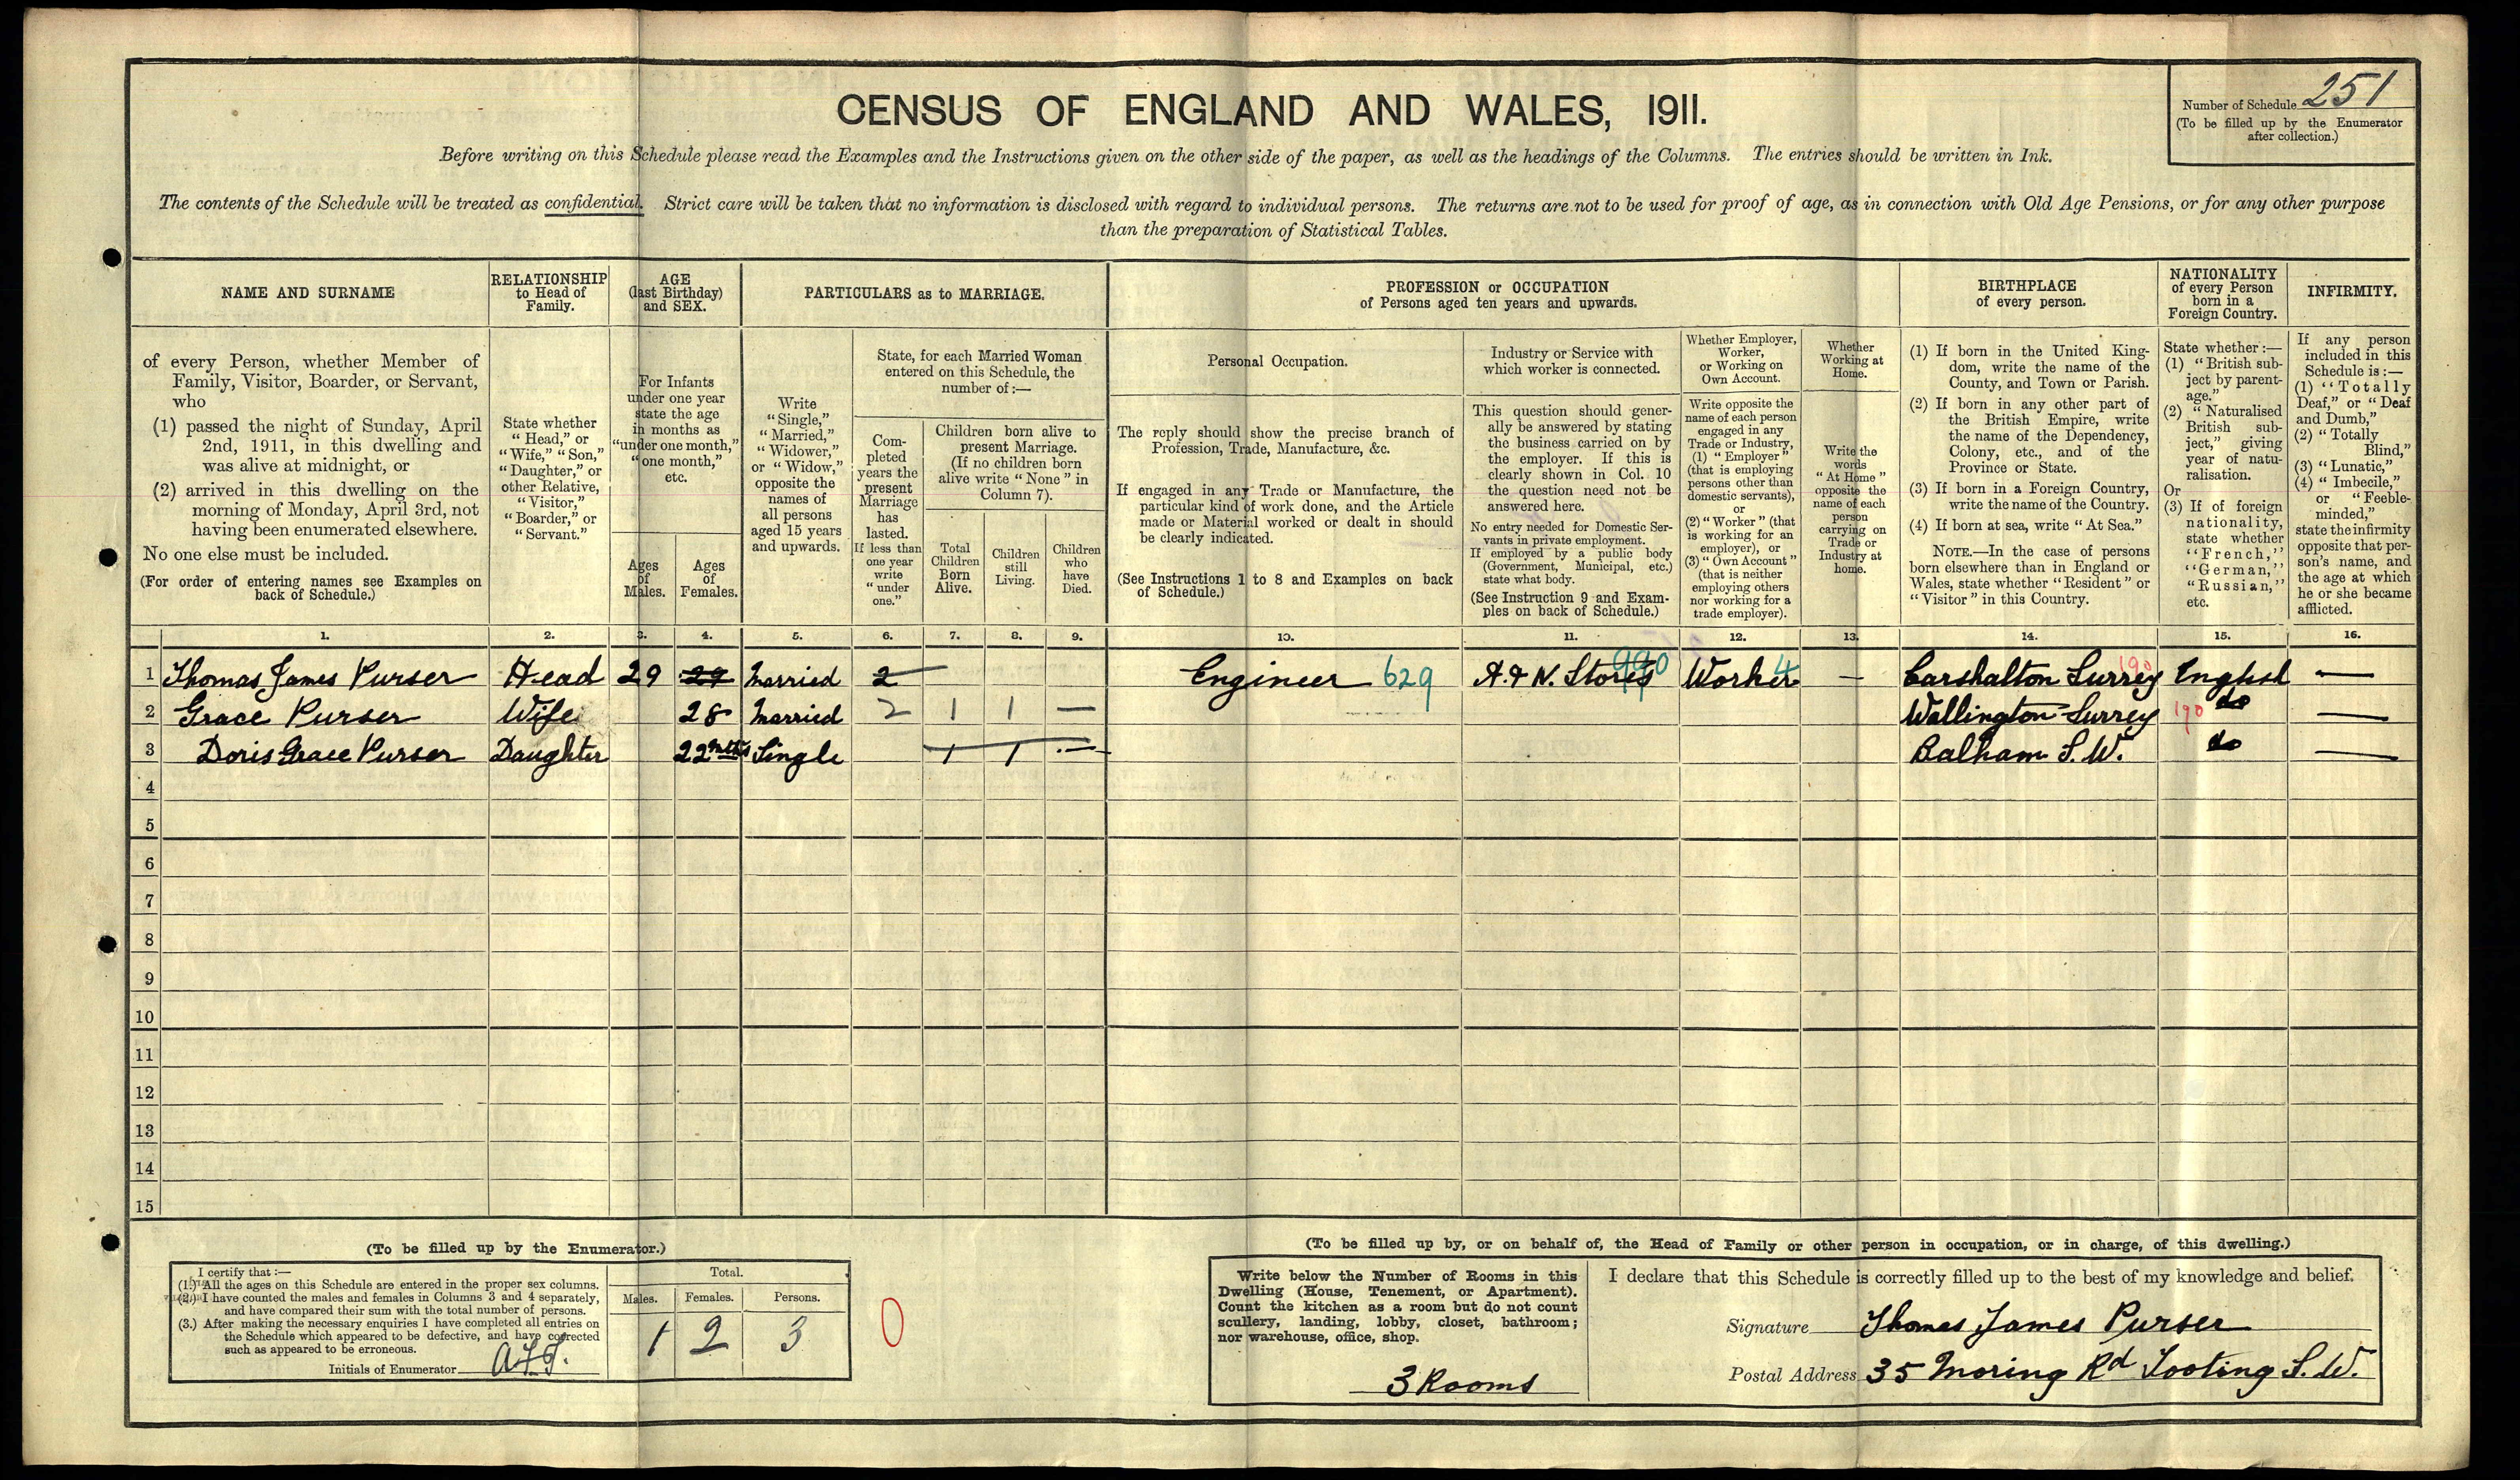 CENSUS OF ENGLAND AND WALES, 1911.
Number of Schedule 251
(To be filled up by the Enumerator
after collection.)
Before writing on this Schedule please read the Examples and the Instructions given on the other side of the paper, as well as the headings of the Columns. The entries should be written in Ink.
The contents of the Schedule will be treated as confidential. Strict care will be taken that no information is disclosed with regard to individual persons. The returns are not to be used for proof of age, as in connection with Old Age Pensions, or for any other purpose
than the preparation of Statistical Tables.
NAME AND SURNAME
of every Person, whether Member of
Family, Visitor, Boarder, or Servant,
who
(1) passed the night of Sunday, April
2nd, 1911, in this dwelling and
was alive at midnight, or
(2) arrived in this dwelling on the
morning of Monday, April 3rd, not
having been enumerated elsewhere.
No one else must be included.
(For order of entering names see Examples on
back of Schedule.)
RELATIONSHIP
to Head of
Family.
State whether
"Head," or
"Wife," "Son,"
"Daughter," or
other Relative,
"Visitor,"
"Boarder," or
"Servant."
AGE
(last Birthday)
and SEX.
For Infants
under one year
state the age
in months as
"under one month,"
"one month,"
etc.
Ages
of
Males.
Ages
of
Females.
PARTICULARS as to MARRIAGE.
Write
"Single,"
"Married,"
"Widower,"
or "Widow,"
opposite the
names of
all persons
aged 15 years
and upwards.
State, for each Married Woman
entered on this Schedule, the
number of:—
Com-
pleted
years the
present
Marriage
has
lasted.
If less than
one year
write
"under
one."
Children born alive to
present Marriage.
(If no children born
alive write "None" in
Column 7).
Total
Children
Born
Alive.
Children
still
Living.
Children
who
have
Died.
PROFESSION or OCCUPATION
of Persons aged ten years and upwards.
Personal Occupation.
The reply should show the precise branch of
Profession, Trade, Manufacture, &c.
If engaged in any Trade or Manufacture, the
particular kind of work done, and the Article
made or Material worked or dealt in should
be clearly indicated.
(See Instructions 1 to 8 and Examples on back
of Schedule.)
Industry or Service with
which worker is connected.
This question should gener-
ally be answered by stating
the business carried on by
the employer. If this is
clearly shown in Col. 10
the question need not be
answered here.
No entry needed for Domestic Ser-
vants in private employment.
If employed by a public body
(Government, Municipal, etc.)
state what body.
(See Instruction 9 and Exam-
ples on back of Schedule.)
Whether Employer,
Worker,
or Working on
Own Account.
Write opposite the
name of each person
engaged in any
Trade or Industry,
(1) "Employer"
(that is employing
persons other than
domestic servants),
or
(2) "Worker" (that
is working for an
employer), or
(3) "Own Account"
(that is neither
employing others
nor working for a
trade employer).
Whether
Working at
Home.
Write the
words
"At Home"
opposite the
name of each
person
carrying on
Trade or
Industry at
home.
BIRTHPLACE
of every person.
(1) If born in the United King-
dom, write the name of the
County, and Town or Parish.
(2) If born in any other part of
the British Empire, write
the name of the Dependency,
Colony, etc., and of the
Province or State.
(3) If born in a Foreign Country,
write the name of the Country.
(4) If born at sea, write "At Sea."
NOTE.—In the case of persons
born elsewhere than in England or
Wales, state whether "Resident" or
"Visitor" in this Country.
NATIONALITY
of every Person
born in a
Foreign Country.
State whether:—
(1) "British sub-
ject by parent-
age."
(2) "Naturalised
British sub-
ject," giving
year of natu-
ralisation.
Or
(3) If of foreign
nationality,
state whether
"French,"
"German,"
"Russian,"
etc.
INFIRMITY.
If any person
included in this
Schedule is:—
(1) "Totally
Deaf," or "Deaf
and Dumb,"
(2) "Totally
Blind,"
(3) "Lunatic,"
(4) "Imbecile,"
or "Feeble-
minded,"
state the infirmity
opposite that per-
son's name, and
the age at which
he or she became
afflicted.
1. 2. 3. 4. 5. 6. 7. 8. 9. 10. 11. 12. 13. 14. 15. 16.
1 Thomas James Purser Head 29 29 Married 2 Engineer 629 A. & N. Stores 990 Worker 4 — Carshalton Surrey 190 English —
2 Grace Purser Wife 28 Married 2 1 1 — Wallington Surrey 190 do —
3 Doris Grace Purser Daughter 22 mths Single 1 1 — Balham S.W. do —
4
5
6
7
8
9
10
11
12
13
14
15
(To be filled up by the Enumerator.)
I certify that:—
(1.) All the ages on this Schedule are entered in the proper sex columns.
(2.) I have counted the males and females in Columns 3 and 4 separately,
and have compared their sum with the total number of persons.
(3.) After making the necessary enquiries I have completed all entries on
the Schedule which appeared to be defective, and have corrected
such as appeared to be erroneous.
Initials of Enumerator
Total.
Males. Females. Persons.
1 2 3
0
(To be filled up by, or on behalf of, the Head of Family or other person in occupation, or in charge, of this dwelling.)
Write below the Number of Rooms in this
Dwelling (House, Tenement, or Apartment).
Count the kitchen as a room but do not count
scullery, landing, lobby, closet, bathroom;
nor warehouse, office, shop.
3 Rooms
I declare that this Schedule is correctly filled up to the best of my knowledge and belief.
Signature Thomas James Purser
Postal Address 35 Moring Rd Tooting S.W.